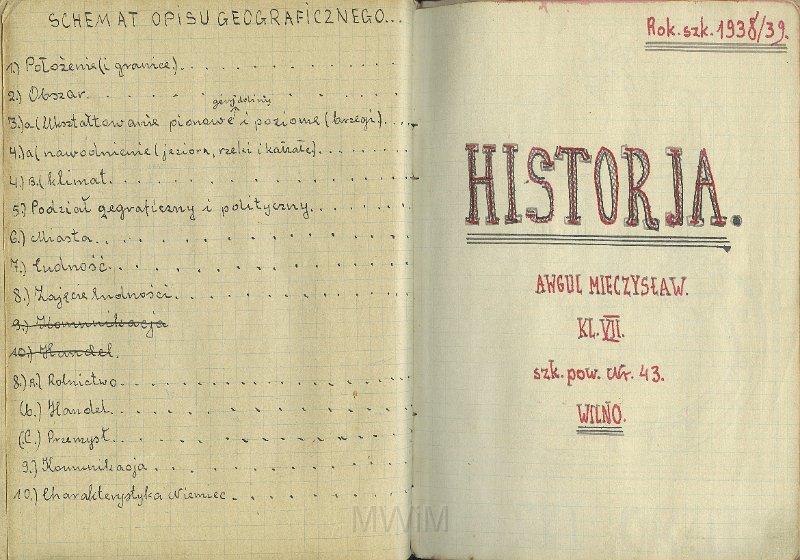 SCHEMAT OPISU GEOGRAFICZNEGO...
1.) Położenie (i granice)
2.) Obszar
góry, doliny
3.) a( Ukształtowanie pionowe i poziome (brzegi)
4.) a( nawodnienie (jeziora, rzeki i kanały)
4.) B.( klimat
5.) Podział gegraficzny i polityczny
6.) Miasta
7.) Ludność
8.) Zajęcie ludności
9.) Komunikacja
10.) Handel.
8.) a.) Rolnictwo
(b.) Handel
(C.) Przemysł
9.) Komunikacja
10.) Charakterystyka Niemiec
Rok. szk. 1938/39.
HISTORJA.
AWGUL MIECZYSŁAW.
KL. VII.
szk. pow. Nr. 43.
WILNO.
MWiM